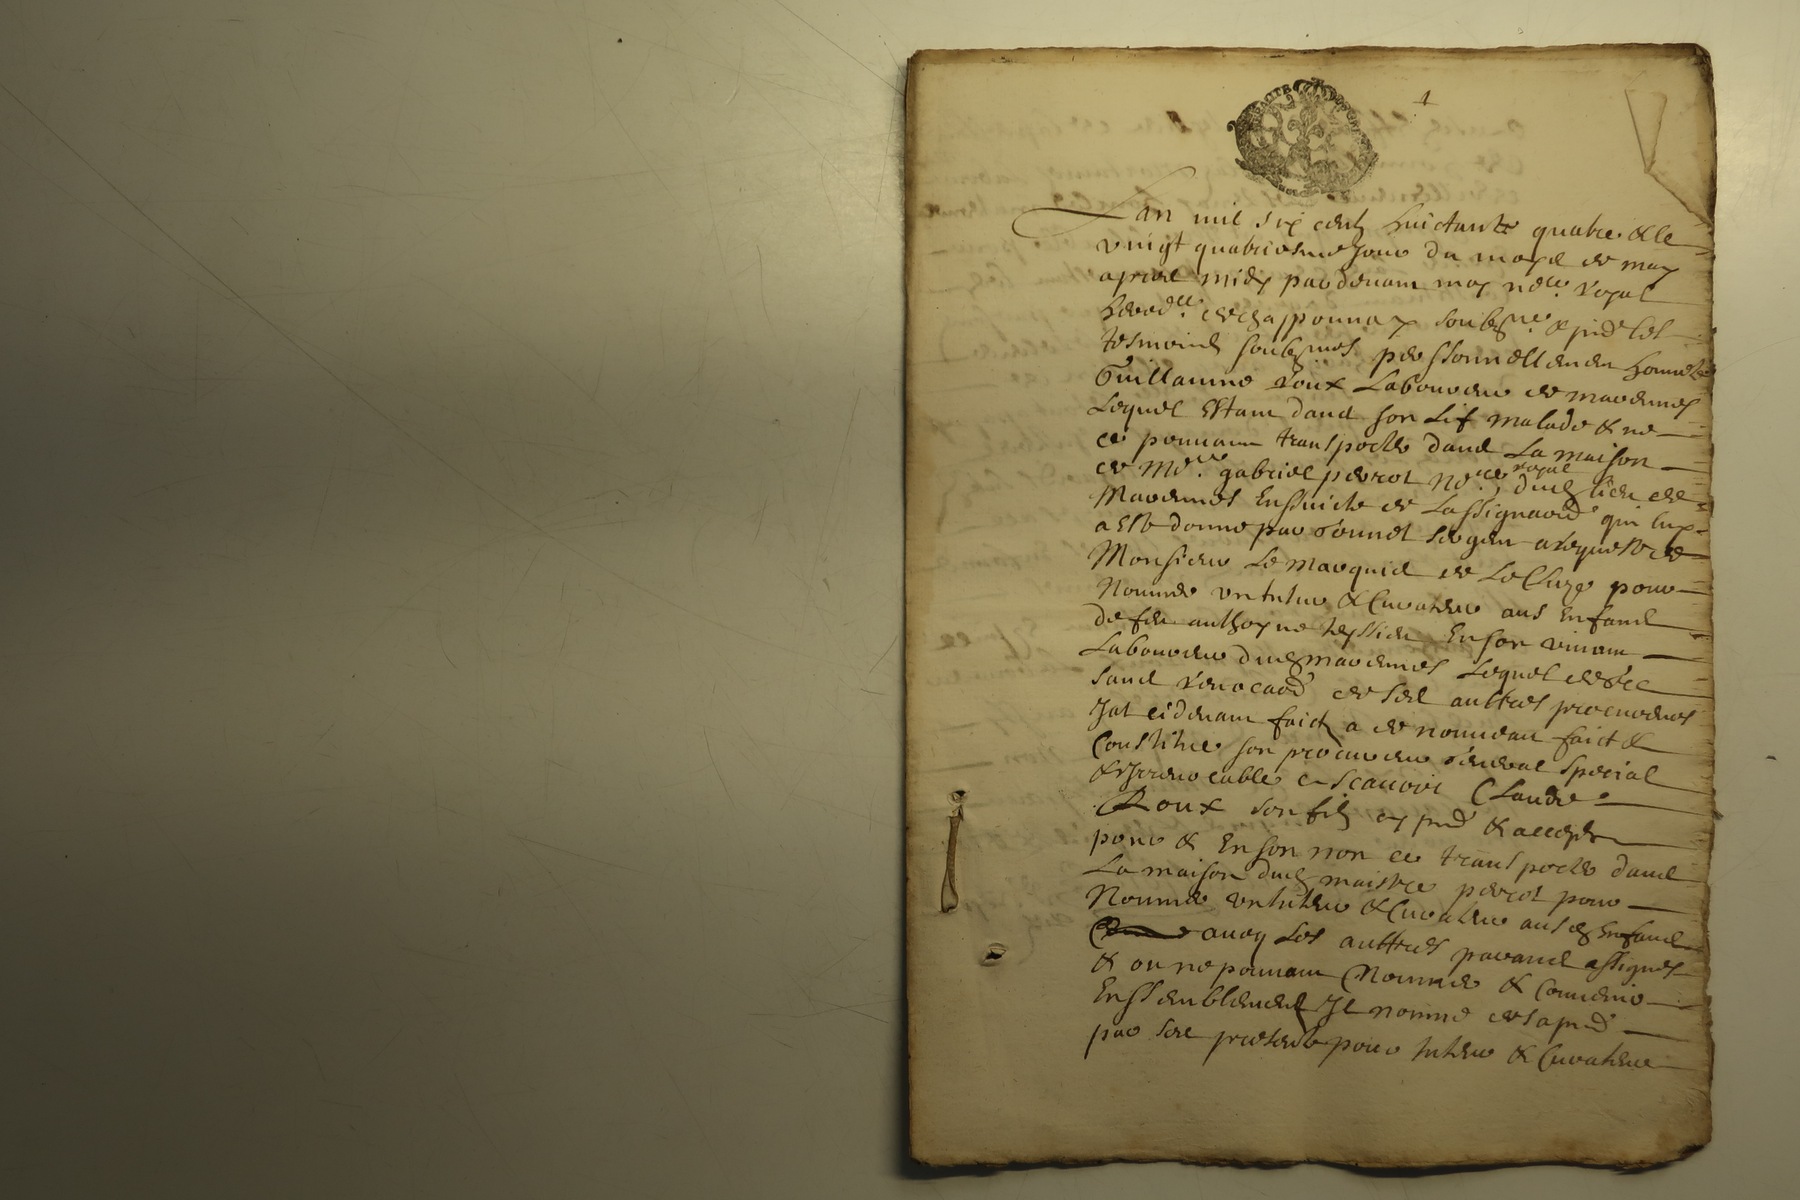 1
Lan mil six centz huictante quatre & le
vingt quatriesme jour du moys de may
apres midy par devant moy no.re royal
hered.re de chapponnay soubz.ne & pnt les
tesmoins soubz nes personnellement honneste
Guillaume Roux Laboureur de marennes
Lequel estant dans son lit malade & ne
ce pouvant transporter dans La maison
de M.re gabriel perrot no.re royal dudz lieu de
Marennes Ensuicte de Lassignaon qui luy
a este donne par Sonnet sergent a requeste de
Monsieur Le marquis de pour
Nommer un tuteur & Curateur aus Enfans
de feu anthoyne teyssier En son vivant
Laboureur dudz marennes Lequel de gre
sans revocaon de ses auttres procureurs
Jat cidevant faictz a de nouveau faict &
Constitue son procureur general special
& Irrevocable a scauoir Claude
Roux son filz cy pnt & acceptant
pour & En son non ce transporter dans
La maison dudz maistre perrot pour
Nommer un tuteur & Curateur ausdz Enfans
aueq Les auttres parans assignes
& ou ne pouvant Nommer & Convenir
Enssemblement Il nomme des a pnt
par ses presentes pour tuteur & Curateur